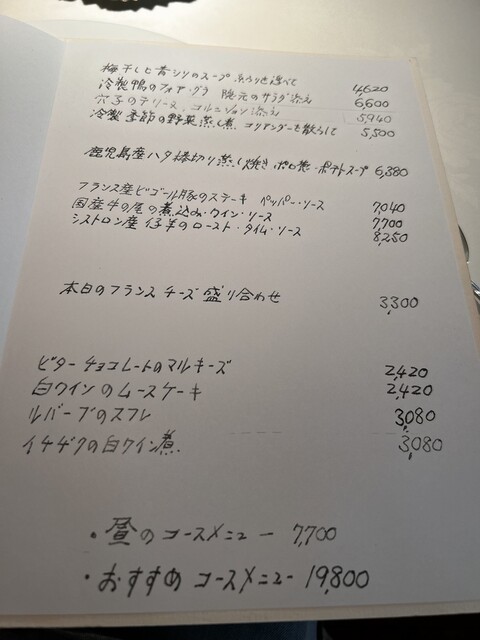 梅干しと昔シソのスープ 4,620
冷製鴨のフォア・グラ 隠元のサラダ添え 6,600
穴子のテリーヌ、コルニション添え 5,940
冷製 季節の野菜蒸し煮 コリアンダーを散らして 5,500
鹿児島産ハタ棒切り蒸し焼き ポロ葱・ポテトスープ 6,380
フランス産ビゴール豚のステーキ ペッパー・ソース 7,040
国産牛の尾の煮込み・ワイン・ソース 7,700
シストロン産 仔羊のロースト・タイム・ソース 8,250
本日のフランス チーズ 盛り合わせ 3,300
ビターチョコレートのマルキーズ 2,420
白ワインのムースケーキ 2,420
ルバーブのスフレ 3,080
イチヂクの白ワイン煮 3,080
・昼のコースメニュー 7,700
・おすすめ コースメニュー 19,800